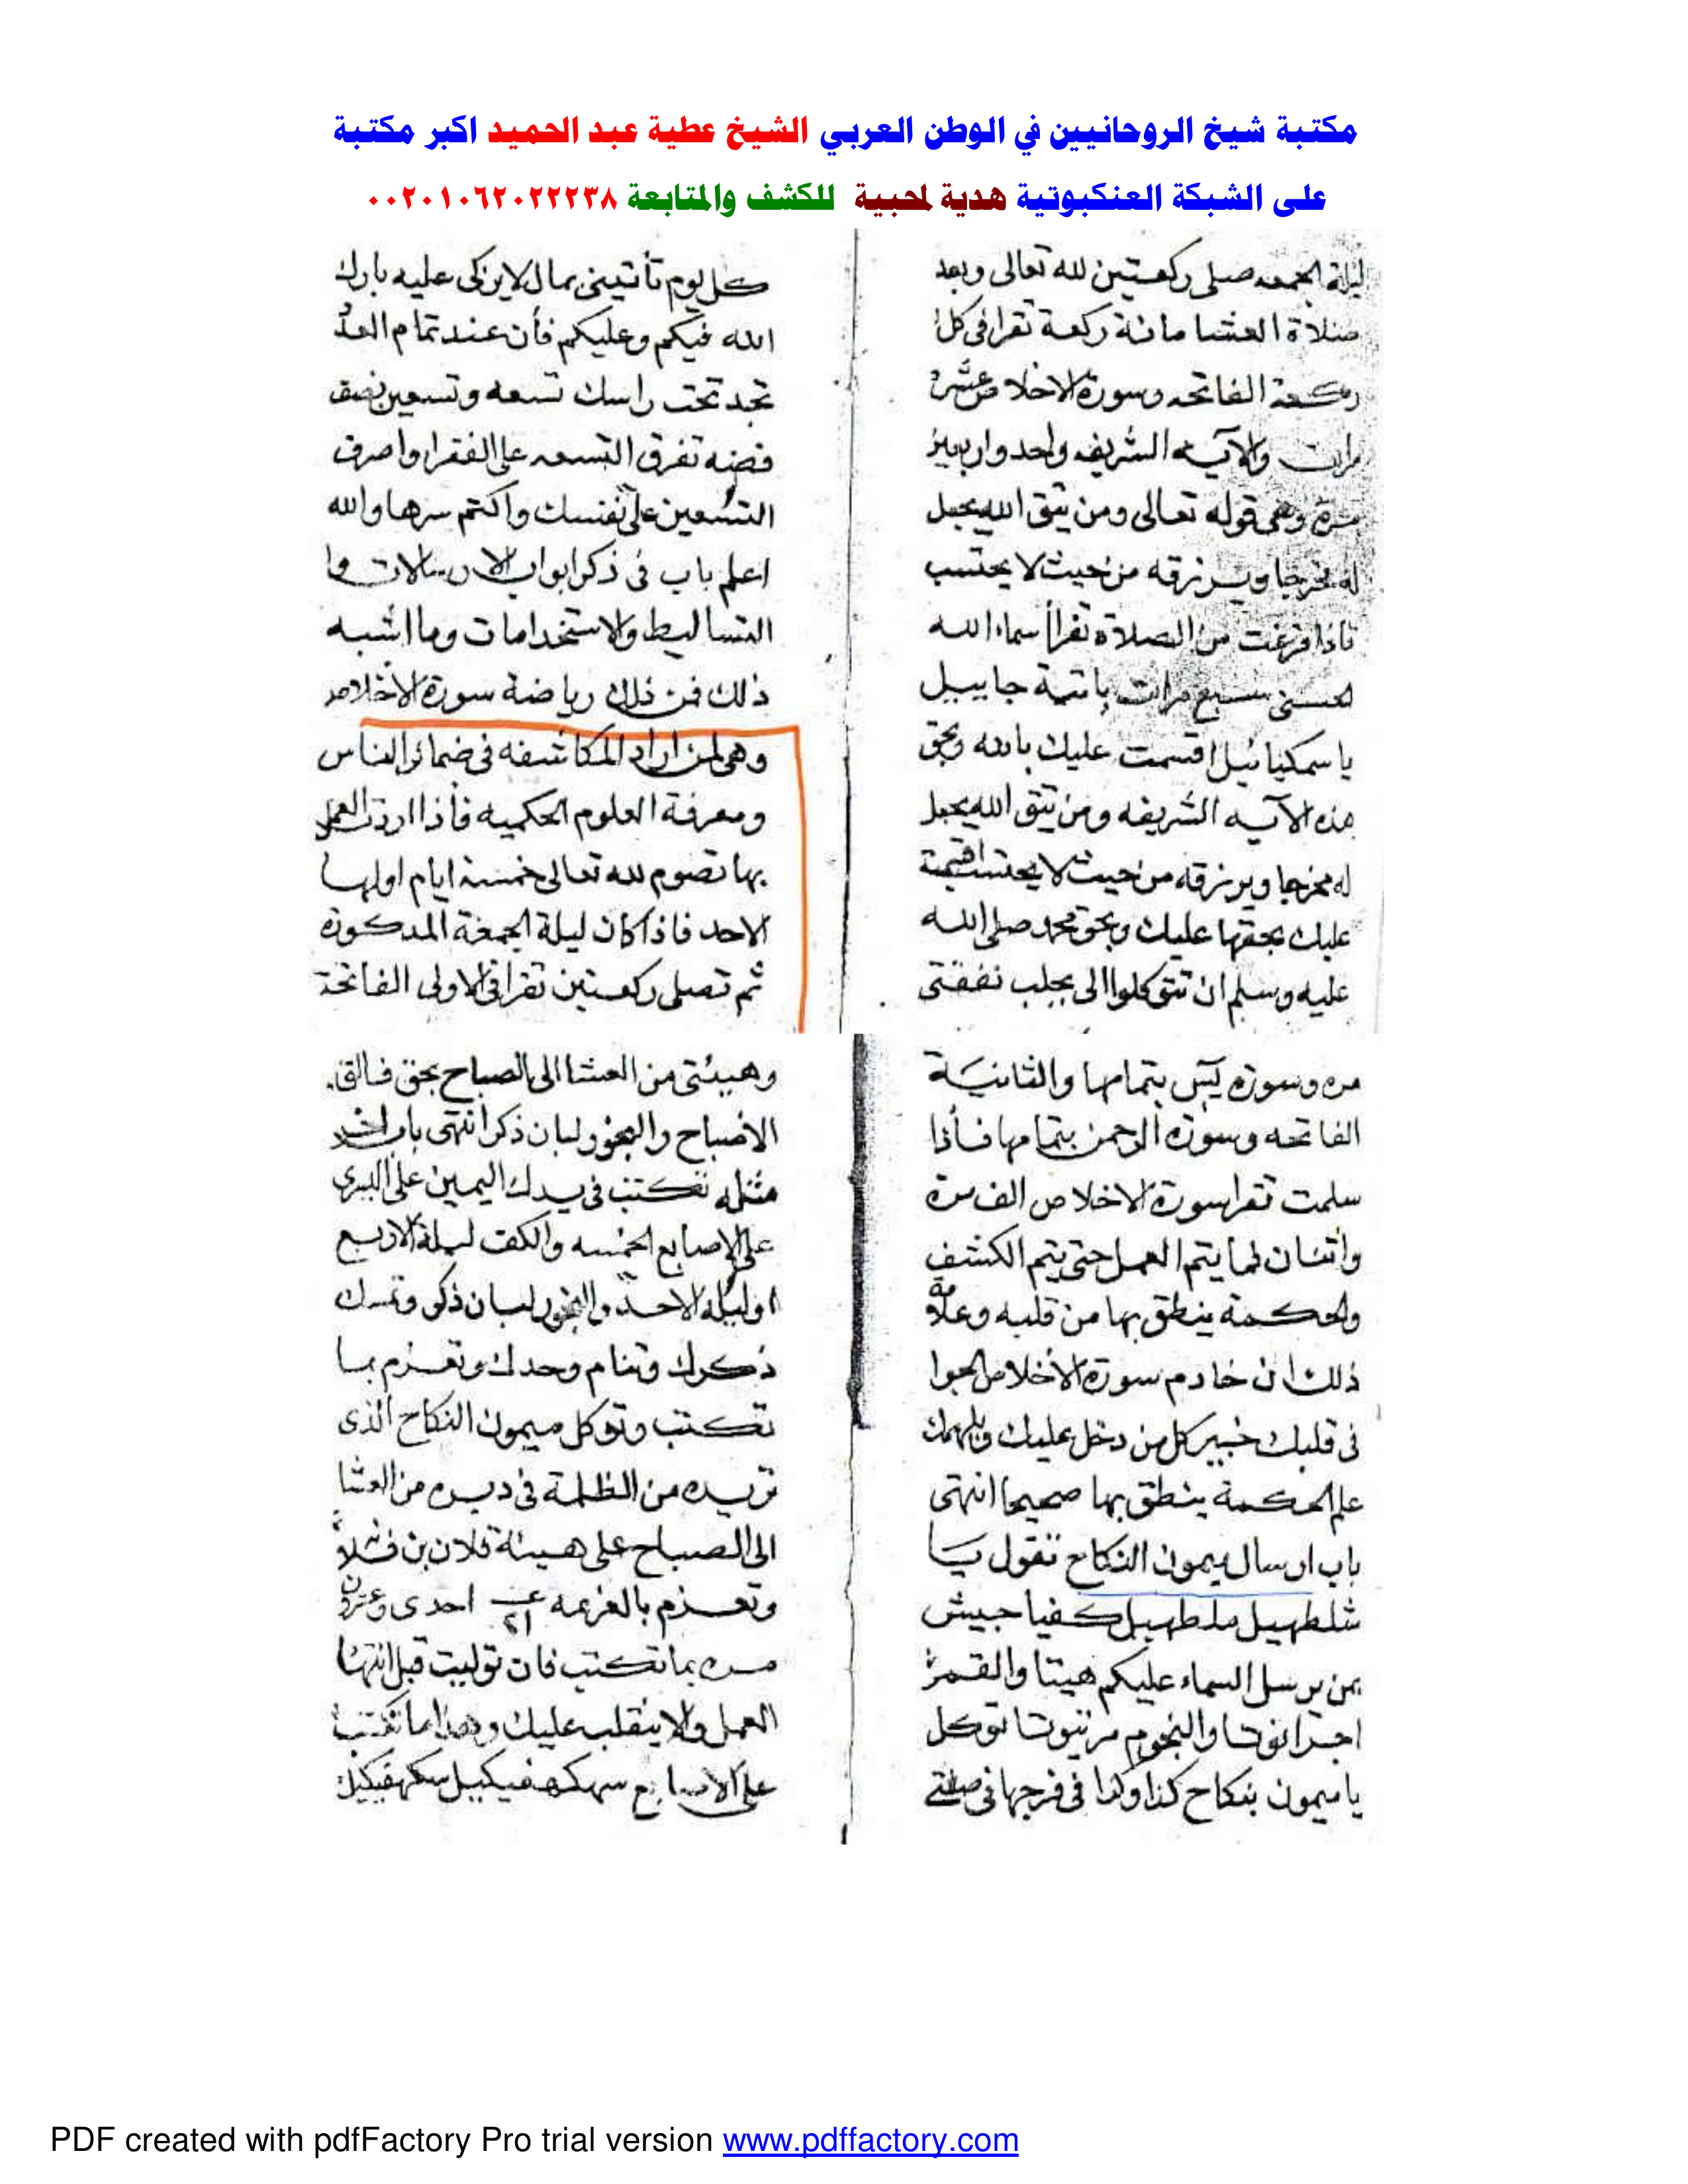 مكتبة شيخ الروحانيين في الوطن العربي الشيخ عطية عبد الحميد اكبر مكتبة
على الشبكة العنكبوتية هدية لمحبية للكشف والمتابعة ٠٠٢٠١٠٦٢٠٢٢٢٣٨
ليلة الجمعه صلى ركعتين لله تعالى وبعد
صلاة العشا مائة ركعة تقرا فى كل
ركعة الفاتحه وسورة الاخلاص عشر
مرات والآيه الشريفه واحد واربعين
مرة وهى قوله تعالى ومن يتق الله يجعل
له مخرجا ويرزقه من حيث لا يحتسب
فاذا فرغت من الصلاة تقرأ اسماء الله
الحسنى سبع مرات جابييل
يا سمكيائيل اقسمت عليك بالله وبحق
هذه الآيه الشريفه ومن يتق الله يجعل
له مخرجا ويرزقه من حيث لا يحتسب اقسمة
عليك بحقها عليك وبحق محمد صلى الله
عليه وسلم ان تتوكلوا الى بجلب نفقتى
كل يوم تأتينى بمال لايزكى عليه بارك
الله فيكم وعليكم فأن عند تمام العدد
تجد تحت راسك تسعه وتسعين نصف
فضه تفرق التسعه على الفقرا واصرف
التسعين على نفسك واكتم سرها والله
اعلم باب فى ذكر ابواب الارسالات وا
التساليط والاستخدامات وما اشبه
ذلك فمن ذلك رياضة سورة الاخلاص
وهى لمن اراد المكاشفه فى ضمائر الناس
ومعرفة العلوم الحكميه فأذا اردت العمل
بها تصوم لله تعالى خمسة ايام اولها
الاحد فاذا كان ليلة الجمعة المذكورة
ثم تصلى ركعتين تقرا فى الاولى الفاتحة
مره وسورة يس بتمامها والثانية
الفاتحه وسورة الرحمن بتمامها فأذا
سلمت تقرا سورة الاخلاص الف مرة
واتنان لما يتم العمل حتى يتم الكشف
والحكمة ينطق بها من قلبه وعلامة
ذلك ان خادم سورة الاخلاص
فى قلبك خبير كل من دخل عليك ويلهمك
علم الحكمة ينطق بها صحيحا انتهى
باب ارسال ميمون النكاح تقول يا
شلطهيل ملطهيل كفياجيش
بمن يرسل السماء عليكم هيتا والقمر
والنجوم توكل
يا ميمون بنكاح كذا وكذا فى فرجها فى
وهيئتى من العشا الى الصباح بحق فالق
الاصباح والبخور لبان ذكر انتهى باب
مثله تكتب فى يدك اليمين على اليسرى
على الاصابع الخمسه والكف ليلة الاربع
او ليلة الاحد والبخور لبان ذكر وتمسك
ذكرك وتنام وحدك وتعزم بما
تكتب وتوكل ميمون النكاح الذى
تريده من الظلمة فى دبره من العشا
الى الصباح على هيئة فلان بن فلانة
وتعزم بالعزيمه ٢١ احدى وعشرون
مره بما تكتب فان توليت قبل انتها
العمل والا ينقلب عليك وهذا ما تكتب
على الاصابع
PDF created with pdfFactory Pro trial version www.pdffactory.com